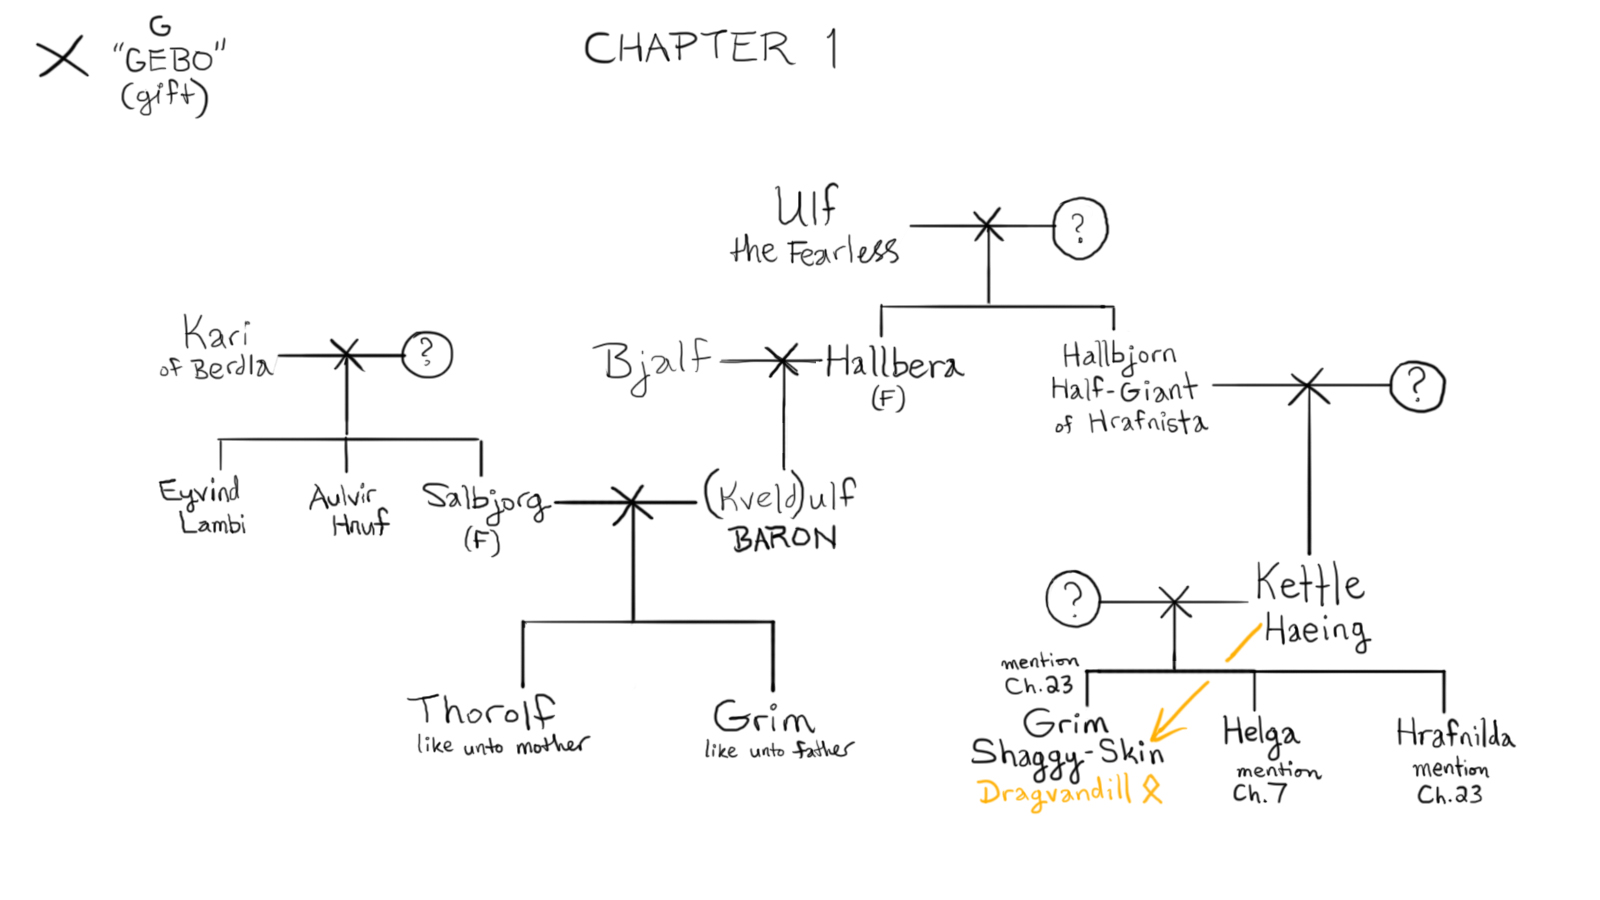 G
"GEBO"
(gift)
CHAPTER 1
Ulf
the Fearless
?
Kari
of Berdla
?
Bjalf
Hallbera
(F)
Hallbjorn
Half-Giant
of Hrafnista
?
Eyvind
Lambi
Aulvir
Hnuf
Salbjorg
(F)
(Kveld)ulf
BARON
?
Kettle
Haeing
mention
Ch.23
Thorolf
like unto mother
Grim
like unto father
Grim
Shaggy-Skin
Dragvandill ᛟ
Helga
mention
Ch.7
Hrafnilda
mention
Ch.23